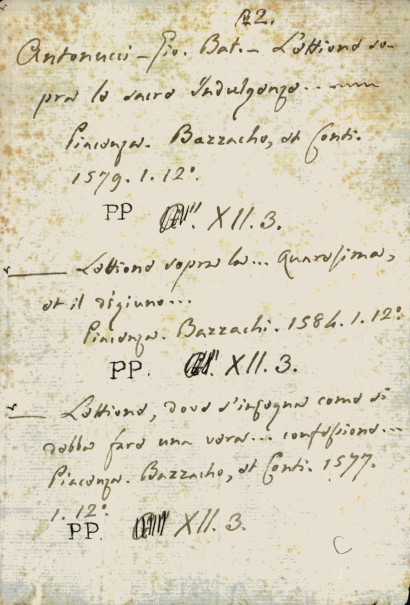 22.
Antonucci - Gio. Bat. - Lettione so-
pra le sacre Indulgenze...
Piacenza. Bazzacho, et Conti.
1579. 1. 12°.
PP XII. 3.
— Lettione sopra la... Quaresima,
et il digiuno...
Piacenza. Bazzachi. 1584. 1. 12°.
PP. XII. 3.
— Lettione, dove s'insegna come si
debba fare una vera... confessione...
Piacenza. Bazzacho, et Conti. 1577.
1. 12°.
PP. XII. 3.
C